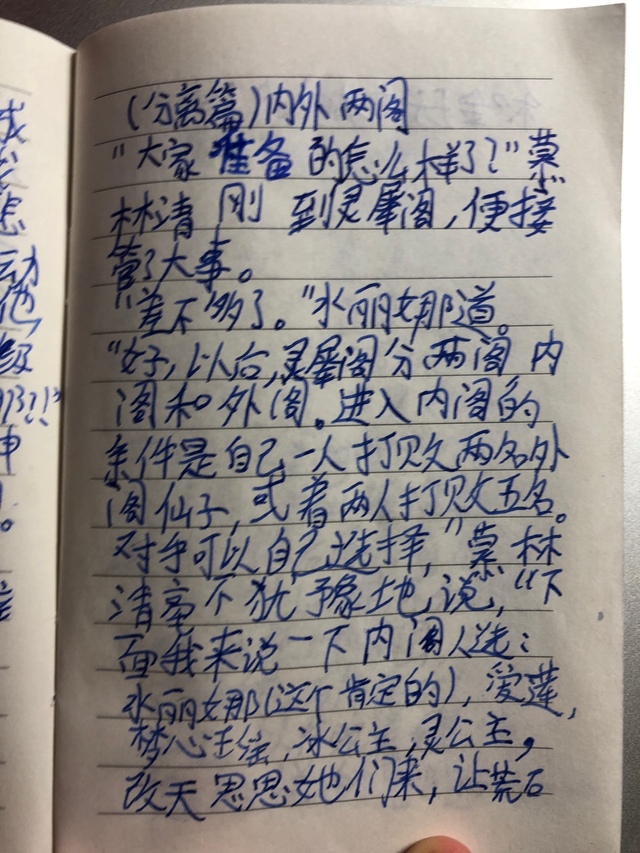 (分离篇)内外两阁
“大家准备的怎么样了?”慕
林清 刚 到灵犀阁,便接
管了大事。
“差不多了。”水丽娜道。
“好,以后,灵犀阁分两阁 内
阁和外阁。进入内阁的
条件是自己一人打败两名外
阁仙子,或着两人打败五名。
对手可以自己选择,”慕林
清毫不犹豫地说,“下
面我来说一下内阁人选:
水丽娜(这个肯定的),爱莲,
梦心王维,冰公主,灵公主,
改天思思她们来,让